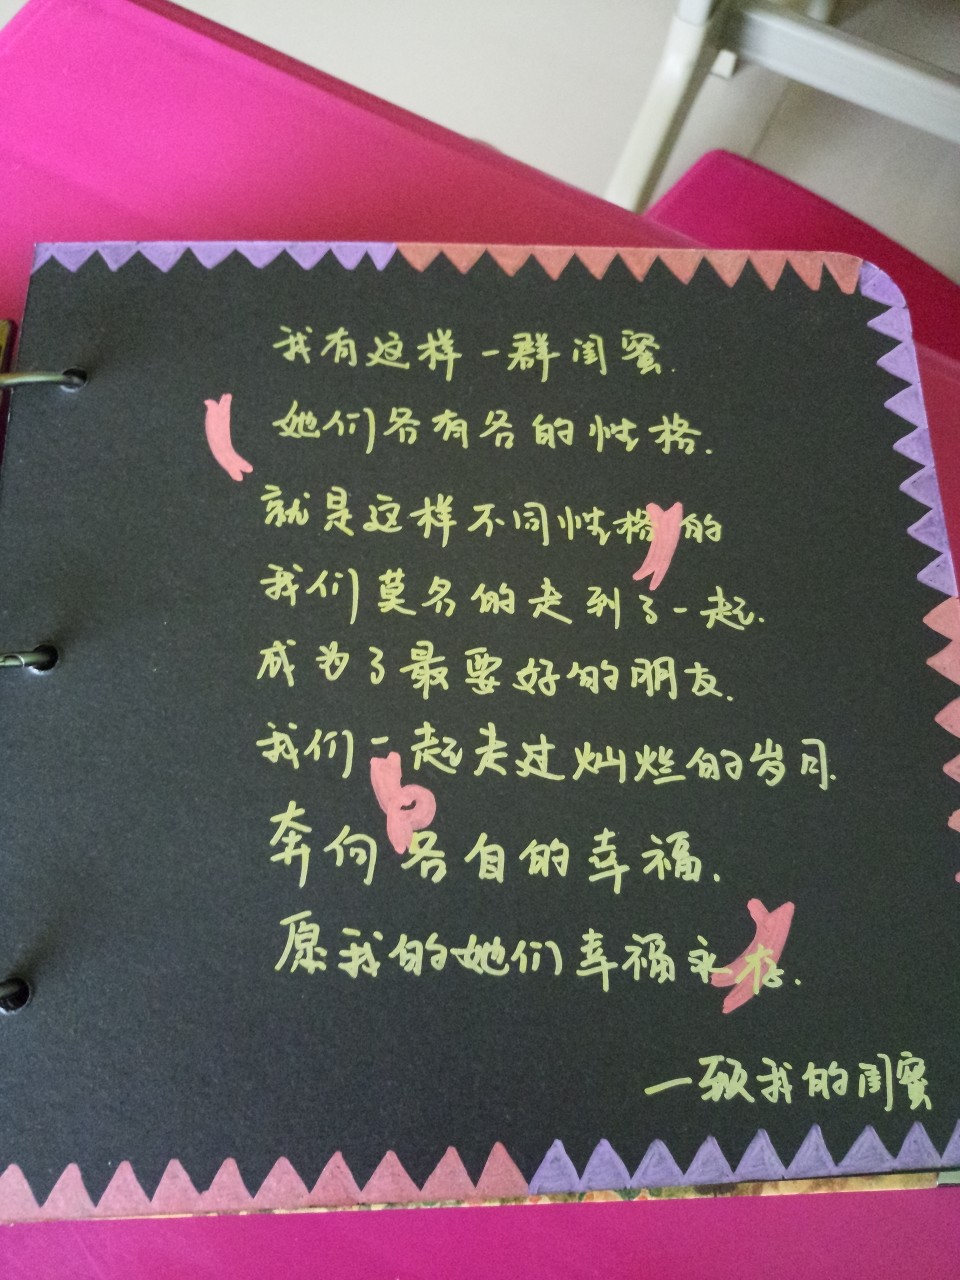 我有这样一群闺蜜.
她们各有各的性格.
就是这样不同性格的
我们莫名的走到了一起.
成为了最要好的朋友.
我们一起走过灿烂的岁月.
奔向各自的幸福.
愿我的她们幸福永存.
一致我的闺蜜